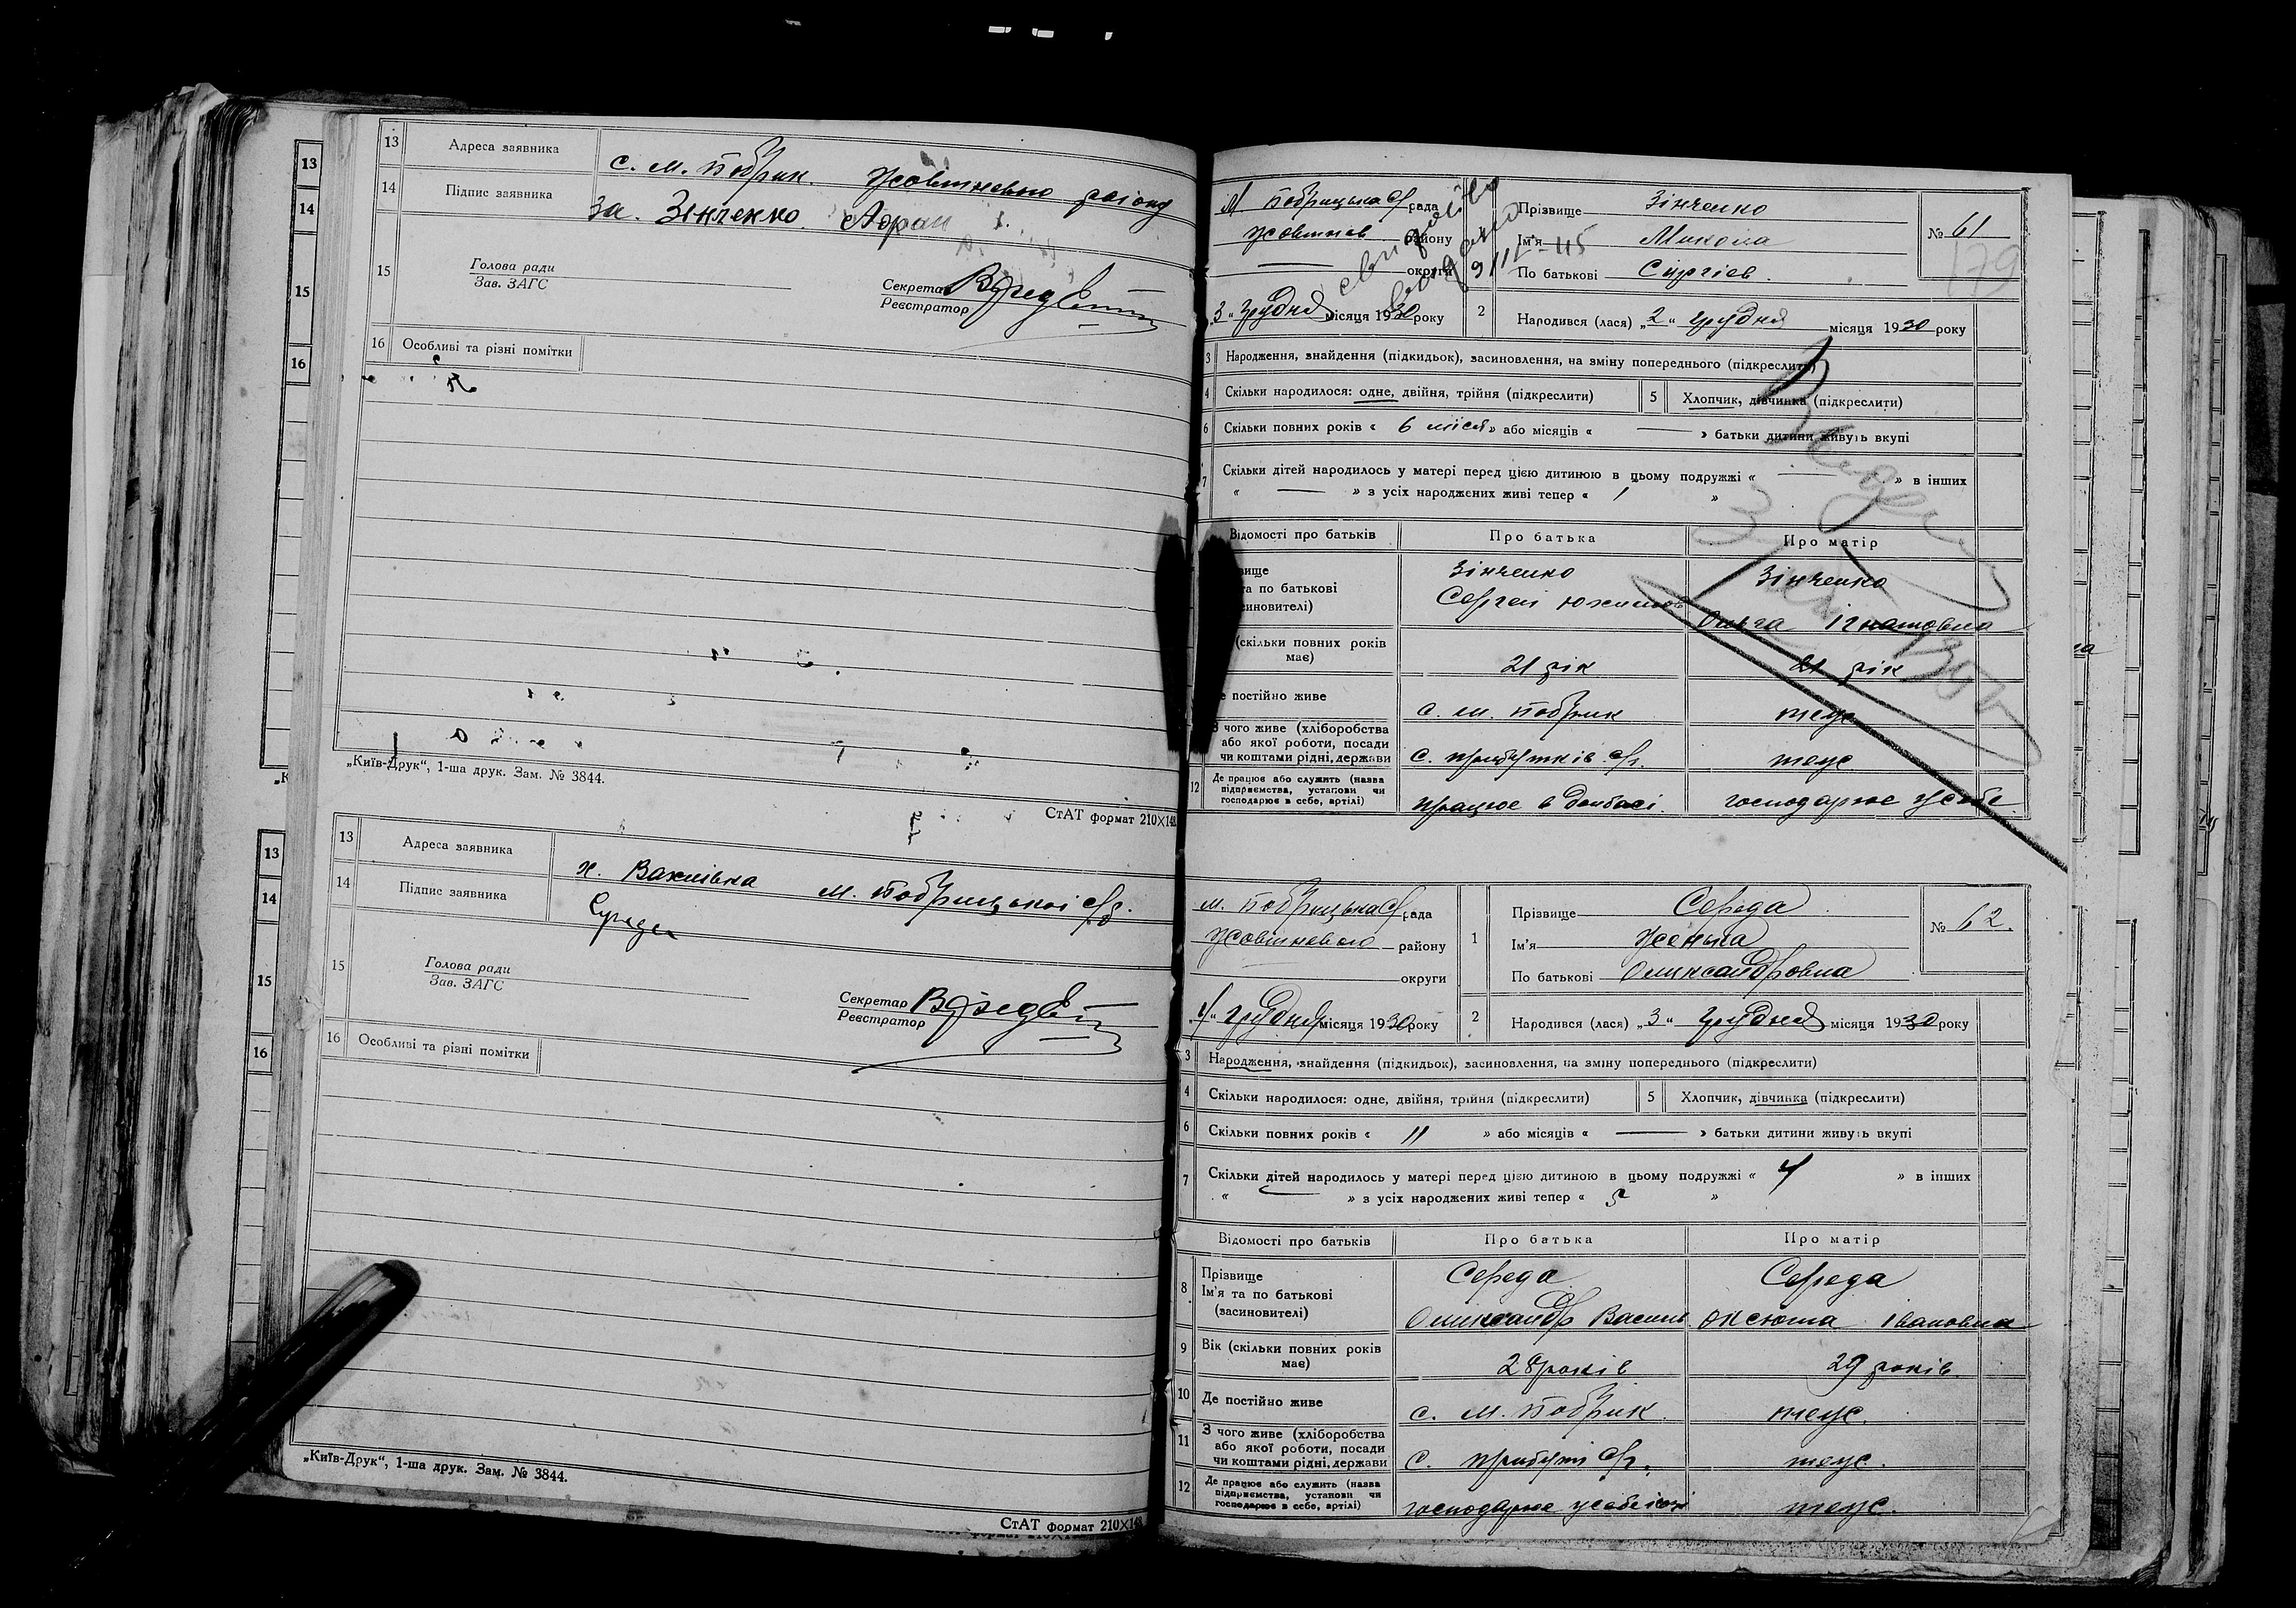 13 Адреса заявника с. м. Бобрик. Жовтневого району
14 Підпис заявника За. Зінченко
15 Голова ради
Зав. ЗАГС
Секретар
Реєстратор
16 Особливі та різні помітки
„Київ-Друк“, 1-ша друк. Зам. № 3844.
СтАТ формат 210×148
13 Адреса заявника х. М. Бобрицької с/р.
14 Підпис заявника Середа
15 Голова ради
Зав. ЗАГС
Секретар
Реєстратор
16 Особливі та різні помітки
„Київ-Друк“, 1-ша друк. Зам. № 3844.
СтАТ формат 210×148
М. Бобрицька с/рада
Жовтнев району
округи
„3“ Грудня місяця 1930 року
свидоцтво
видано
9/III-45
Прізвище Зінченко
Ім'я Микола
По батькові Сиргіев.
№ 61
179
2 Народився (лася) „2“ грудня місяця 1930 року
3 Народження, знайдення (підкидьок), засиновлення, на зміну попереднього (підкреслити)
4 Скільки народилося: одне, двійня, трійня (підкреслити) 5 Хлопчик, дівчинка (підкреслити)
6 Скільки повних років « 6 місяц » або місяців « — » батьки дитини живуть вкупі
7 Скільки дітей народилось у матері перед цією дитиною в цьому подружжі « — » в інших
« — » з усіх народжених живі тепер « 1 »
Відомості про батьків Про батька Про матір
вище Зінченко Зінченко
та по батькові Сергей Юхимов Ольга Ігнатовна
синовителі)
(скільки повних років
має) 21 рік 21 рік
постійно живе с. м. Бобрик теж
чого живе (хліборобства
або якої роботи, посади
чи коштами рідні, держави с. прибутків с/г. теж
12 Де працює або служить (назва
підприємства, установи чи
господарює в себе, артілі) працює в донбасі. господарює у себе
м. Бобрицька с/рада
Жовтневого району
округи
„4“ грудня місяця 1930 року
1 Прізвище Середа
Ім'я Женька
По батькові Олександровна
№ 62.
2 Народився (лася) „3“ грудня місяця 1930 року
3 Народження, знайдення (підкидьок), засиновлення, на зміну попереднього (підкреслити)
4 Скільки народилося: одне, двійня, трійня (підкреслити) 5 Хлопчик, дівчинка (підкреслити)
6 Скільки повних років « 11 » або місяців « — » батьки дитини живуть вкупі
7 Скільки дітей народилось у матері перед цією дитиною в цьому подружжі « 4 » в інших
« — » з усіх народжених живі тепер « 5 »
Відомості про батьків Про батька Про матір
8 Прізвище Середа Середа
Ім'я та по батькові Олександр Васильв. Оксюта Івановна
(засиновителі)
9 Вік (скільки повних років
має) 28 років 29 років.
10 Де постійно живе с. м. Бобрик. теж.
11 З чого живе (хліборобства
або якої роботи, посади
чи коштами рідні, держави с. прибутк с/г. теж.
12 Де працює або служить (назва
підприємства, установи чи
господарює в себе, артілі) господарює у себе теж.